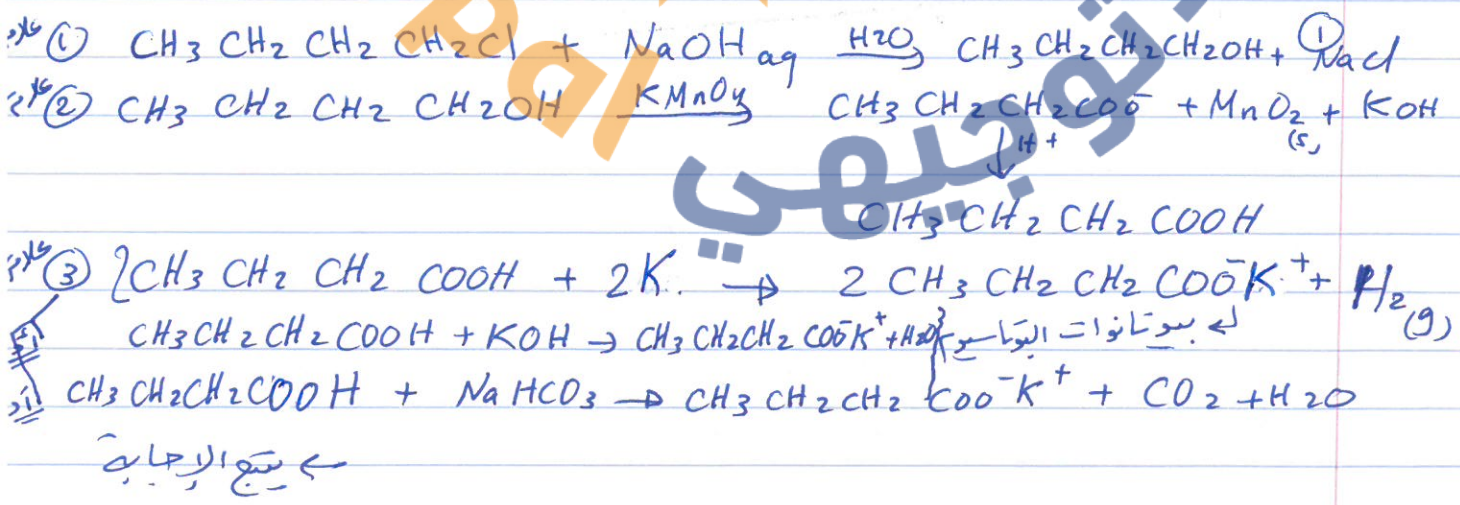 علامة ① CH3 CH2 CH2 CH2Cl + NaOH aq H2O→ CH3 CH2CH2CH2OH + ① NaCl
علامة ② CH3 CH2 CH2 CH2OH KMnO4→ CH3 CH2 CH2COO⁻ + MnO2(s) + KOH
↓H+
CH3 CH2 CH2 COOH
علامة ③ 2CH3 CH2 CH2 COOH + 2K → 2 CH3 CH2 CH2 COO⁻K⁺ + H2(g)
أو CH3CH2CH2COOH + KOH → CH3 CH2CH2 COO⁻K⁺ + H2O بيوتانوات البوتاسيوم
أو CH3 CH2CH2COOH + NaHCO3 → CH3 CH2 CH2 COO⁻K⁺ + CO2 + H2O
← يتبع الإجابة
Pal
توجيهي